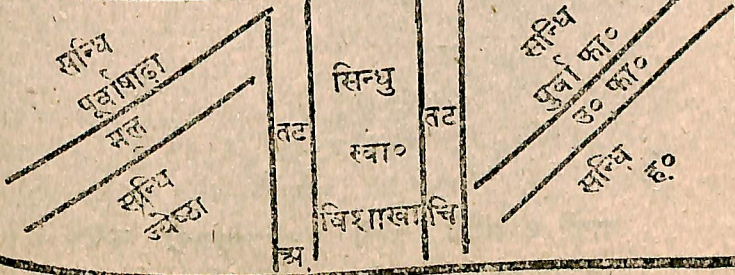 सन्धि
पूर्वाषाढ़ा
मूल
सन्धि
ज्येष्ठा
तट
अ.
सिन्धु
स्वा०
विशाखा
तट
चि
सन्धि
पुर्वा फा०
उ० फा०
सन्धि
ह.०